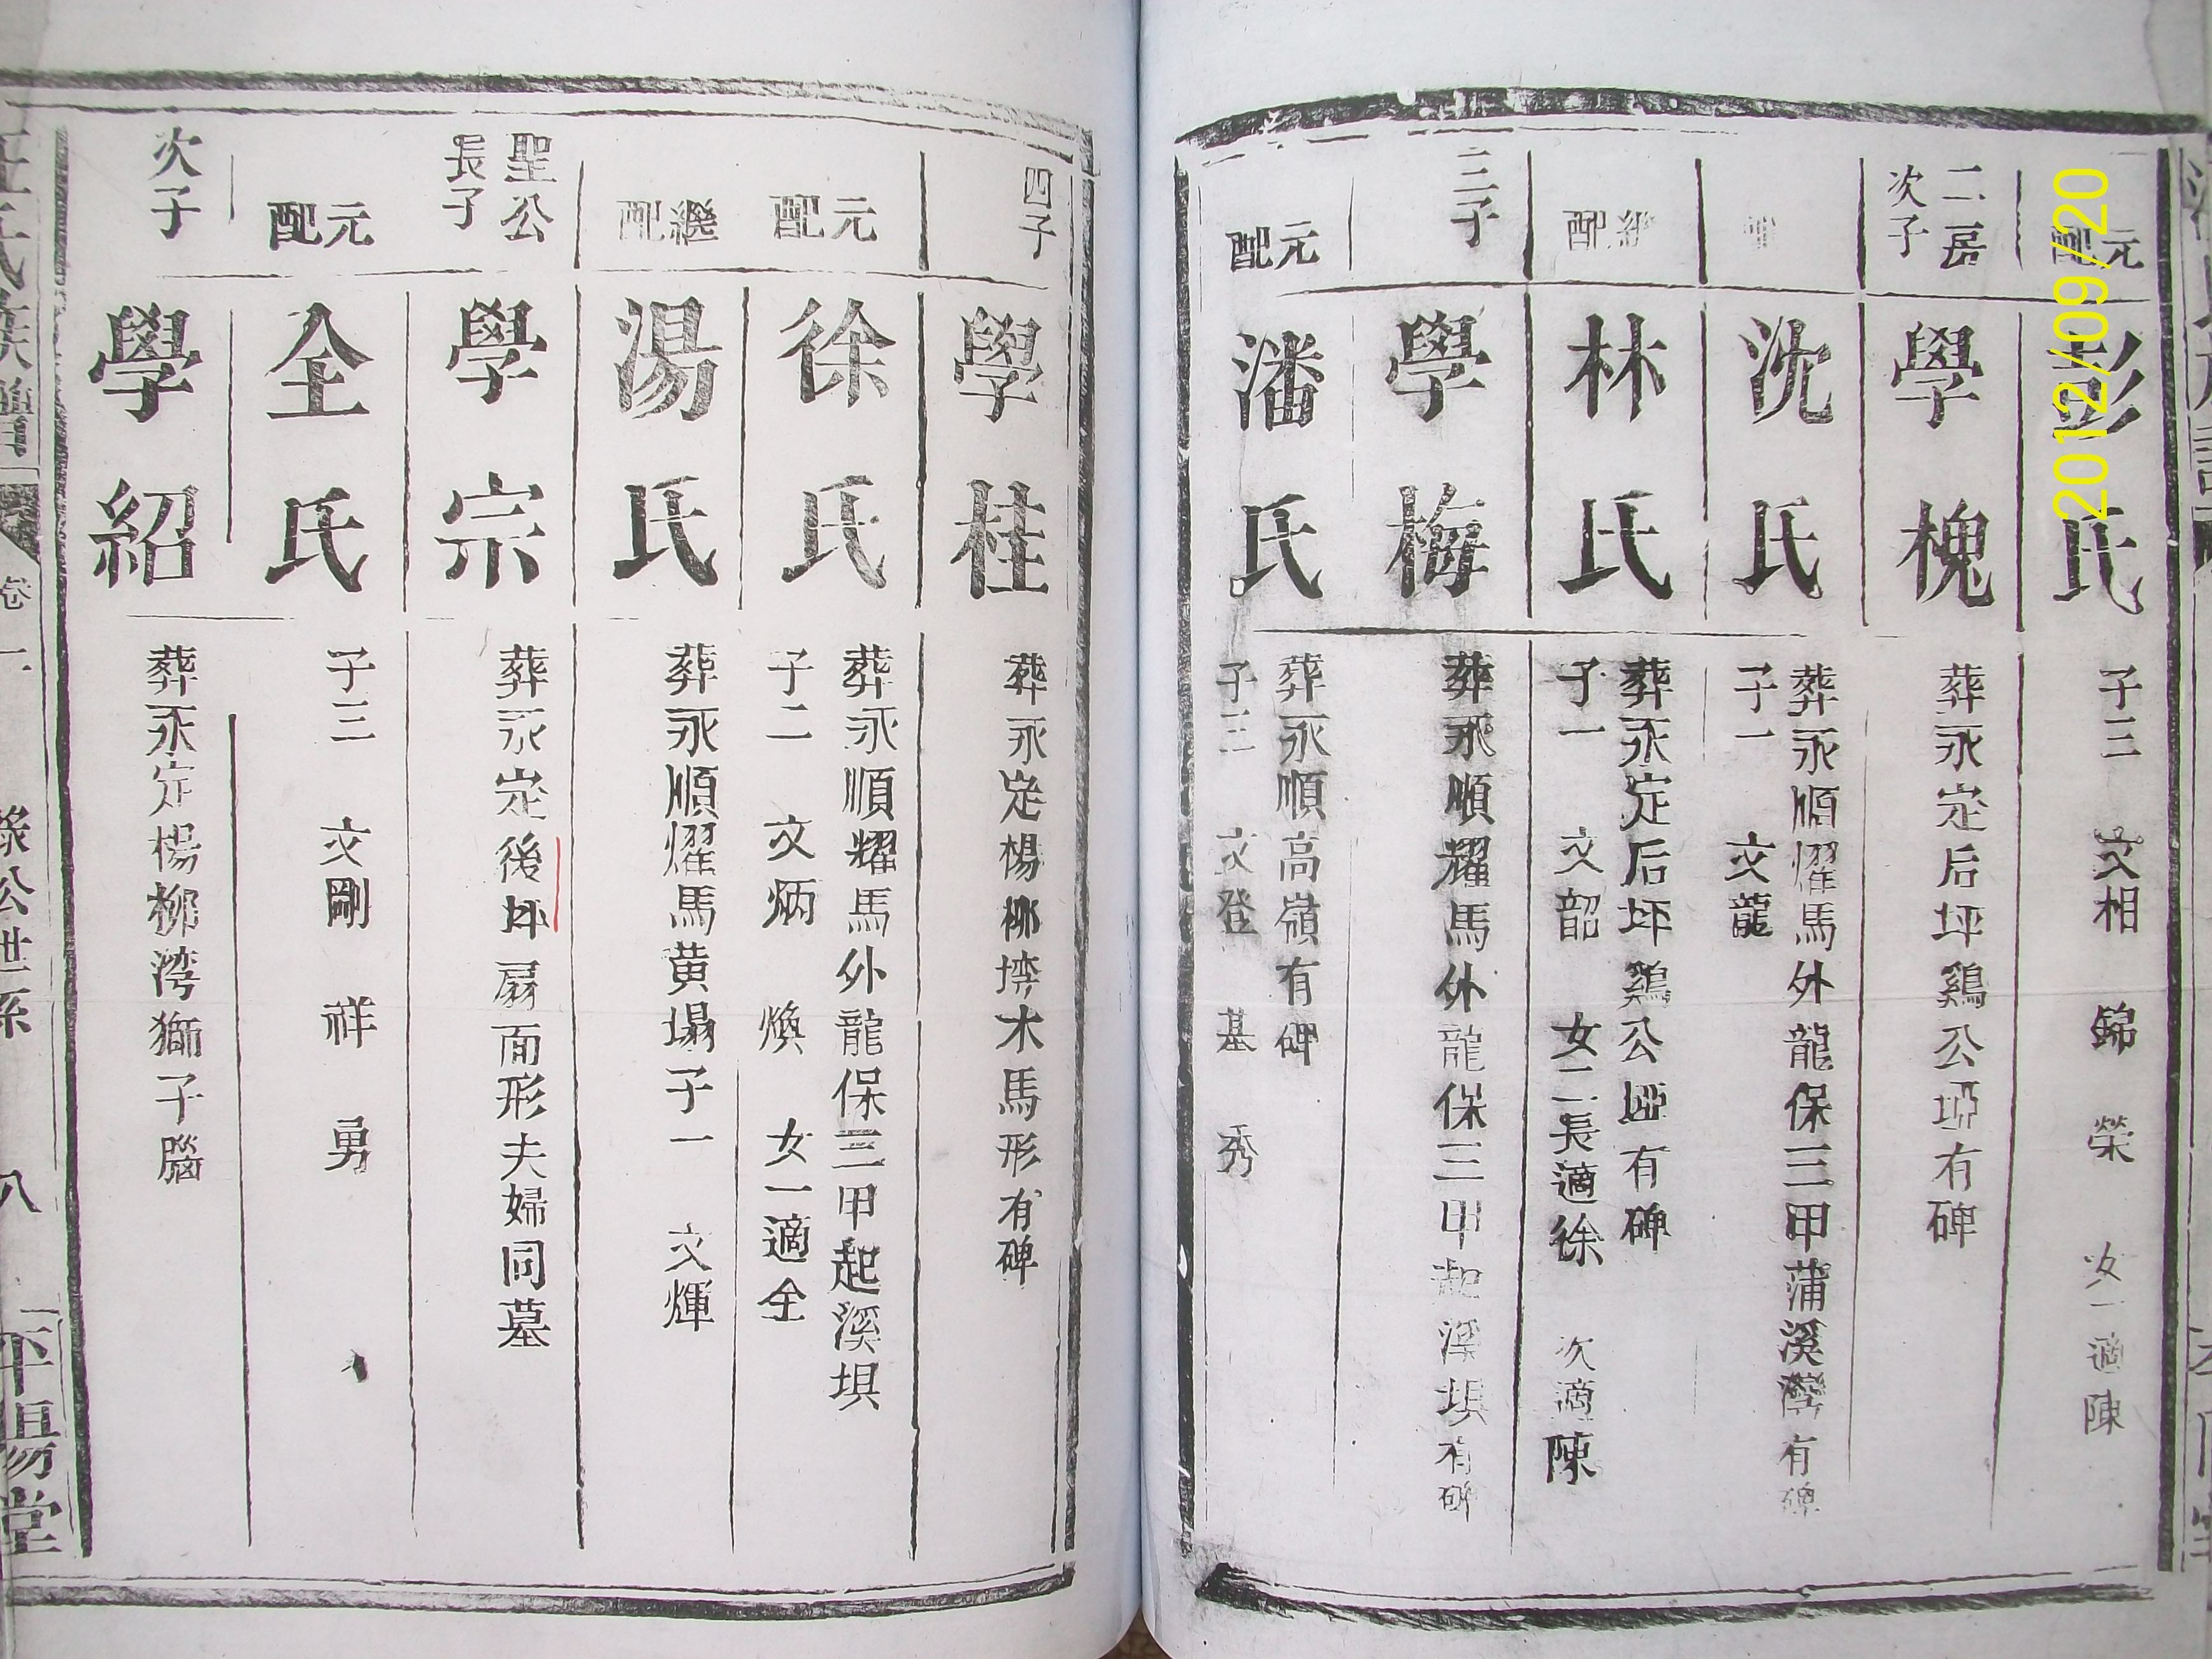 元配
彭氏
子三 文相 錦 榮 女一適陳
二房
次子
學槐
葬永定后坪鷄公埡有碑
沈氏
葬永順耀馬外龍保三甲蒲溪灣有碑
子一 文龍
繼配
林氏
葬永定后坪鷄公埡有碑
子一 文韶 女二長適徐 次適陳
三子
學梅
葬永順耀馬外龍保三甲起溪垻有碑
元配
潘氏
葬永順高嶺有碑
子三 文登 基 秀
四子
學桂
葬永定楊柳塆木馬形有碑
元配
徐氏
葬永順耀馬外龍保三甲起溪垻
子二 文炳 煥 女一適全
繼配
湯氏
葬永順耀馬黄塌子一 文輝
聖公
長子
學宗
葬永定後坪扇面形夫婦同墓
元配
全氏
子三 文剛 祥 勇
次子
學紹
葬永定楊柳湾獅子腦
氏族譜
卷一
公世系
八
平陽堂
2012/09/20